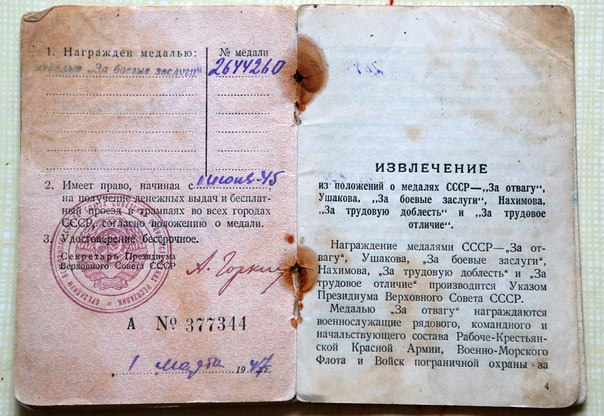 1. Награжден медалью:
№ медали
медалью „За боевые заслуги“
2644260
2. Имеет право, начиная с 1 июня 45
на получение денежных выдач и бесплат-
ный проезд в трамваях во всех городах
СССР, согласно положению о медали.
3. Удостоверение бессрочное.
Секретарь Президиума
Верховного Совета СССР
А. Горкин
А № 377344
1 марта 1947г.
ИЗВЛЕЧЕНИЕ
из положений о медалях СССР—„За отвагу“,
Ушакова, „За боевые заслуги“, Нахимова,
„За трудовую доблесть“ и „За трудовое
отличие“.
Награждение медалями СССР—„За от-
вагу“, Ушакова, „За боевые заслуги“,
Нахимова, „За трудовую доблесть“ и „За
трудовое отличие“ производится Указом
Президиума Верховного Совета СССР.
Медалью „За отвагу“ награждаются
военнослужащие рядового, командного и
начальствующего состава Рабоче-Крестьян-
ской Красной Армии, Военно-Морского
Флота и Войск пограничной охраны за
4